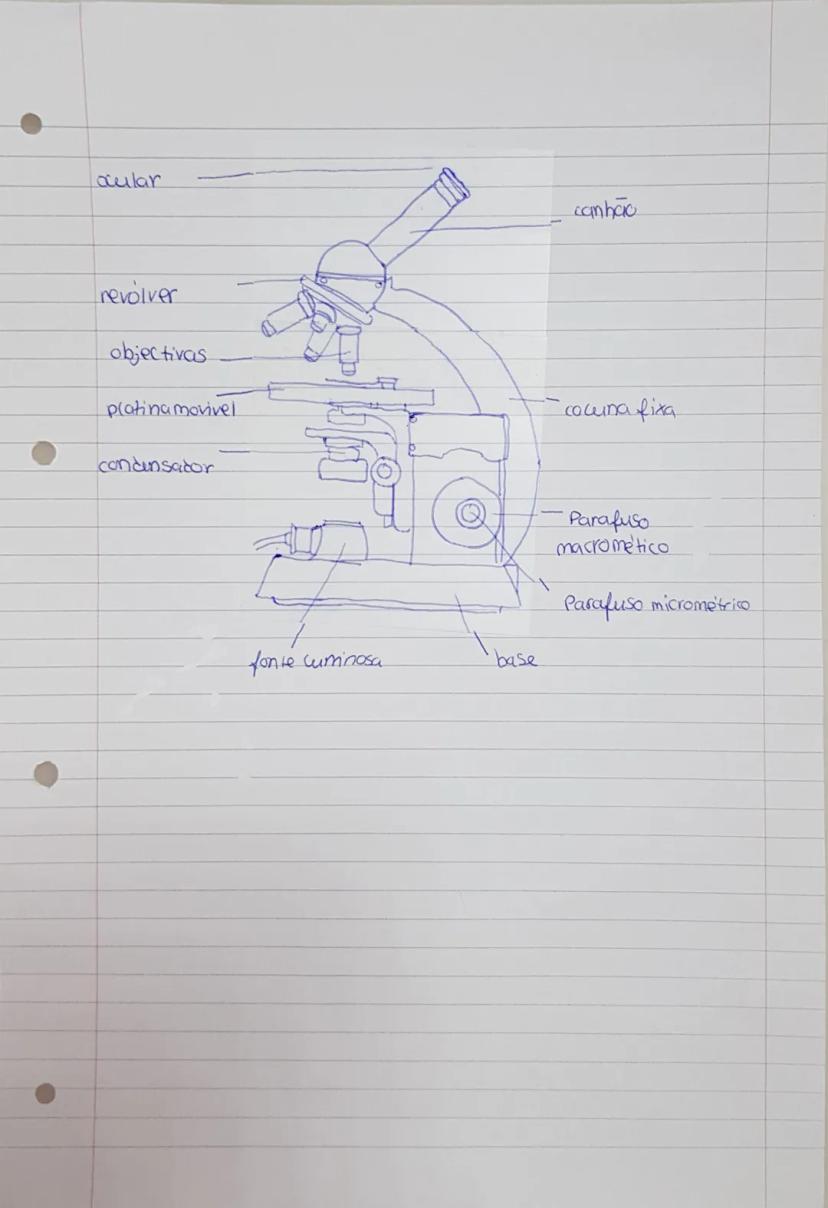 ocular
canhão
revólver
objectivas
platina movivel
coluna fixa
condensador
Parafuso
macromético
Parafuso micrométrico
fonte luminosa
base